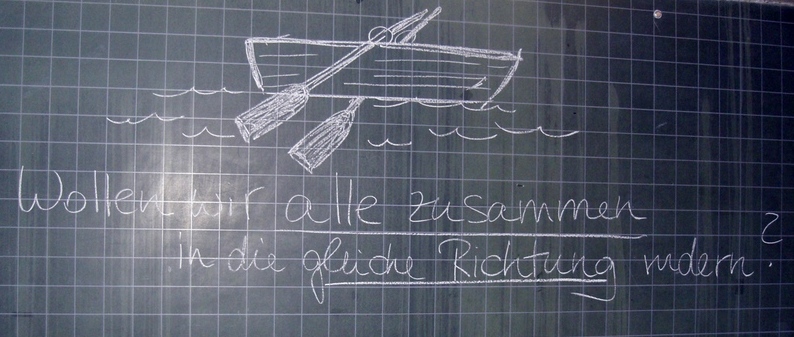 Wollen wir alle zusammen
in die gleiche Richtung rudern?